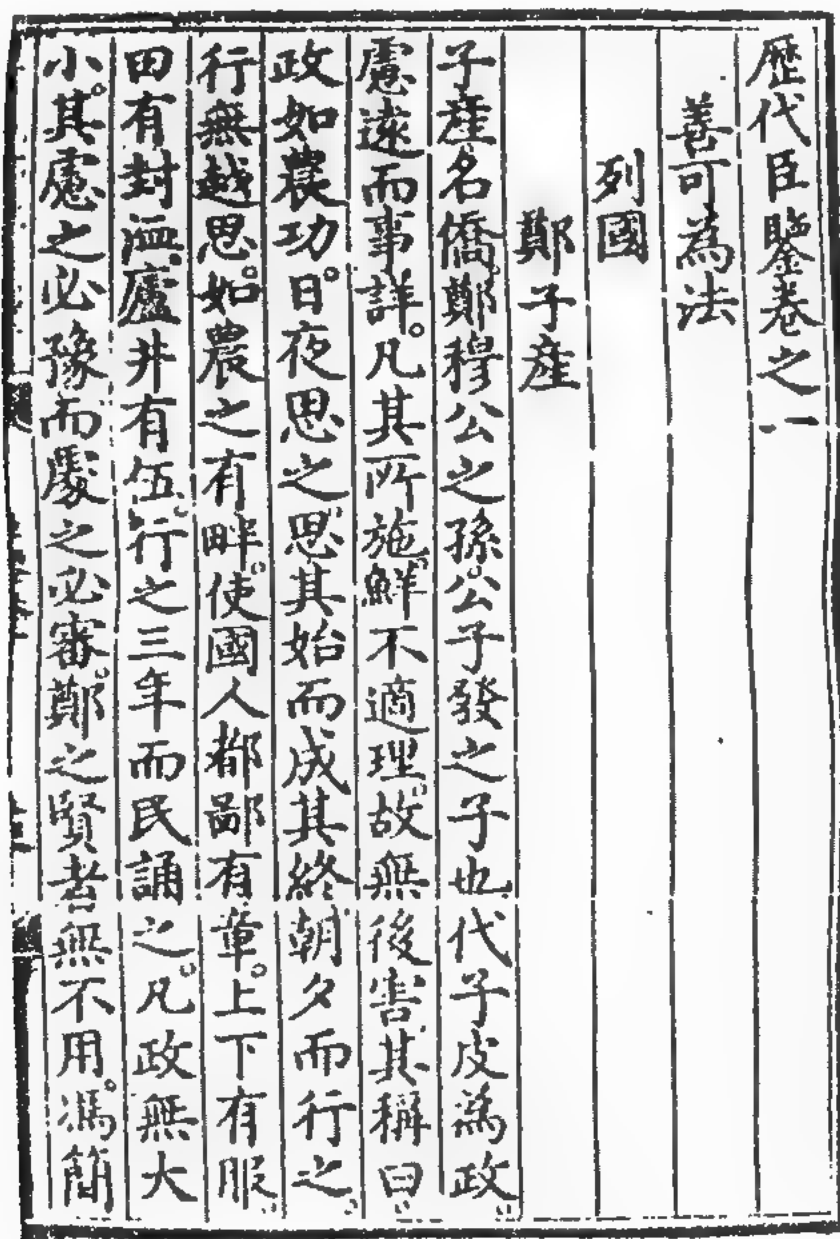 歷代臣鑒卷之一
善可為法
列國
鄭子產
子產名僑。鄭穆公之孫。公子發之子也。代子皮為政。
慮遠而事詳。凡其所施。鮮不適理。故無後害。其稱曰。
政如農功。日夜思之。思其始而成其終。朝夕而行之。
行無越思。如農之有畔。使國人都鄙有章。上下有服。
田有封洫。廬井有伍。行之三年而民誦之。凡政無大
小。其慮之必豫。而處之必審。鄭之賢者無不用。馮簡